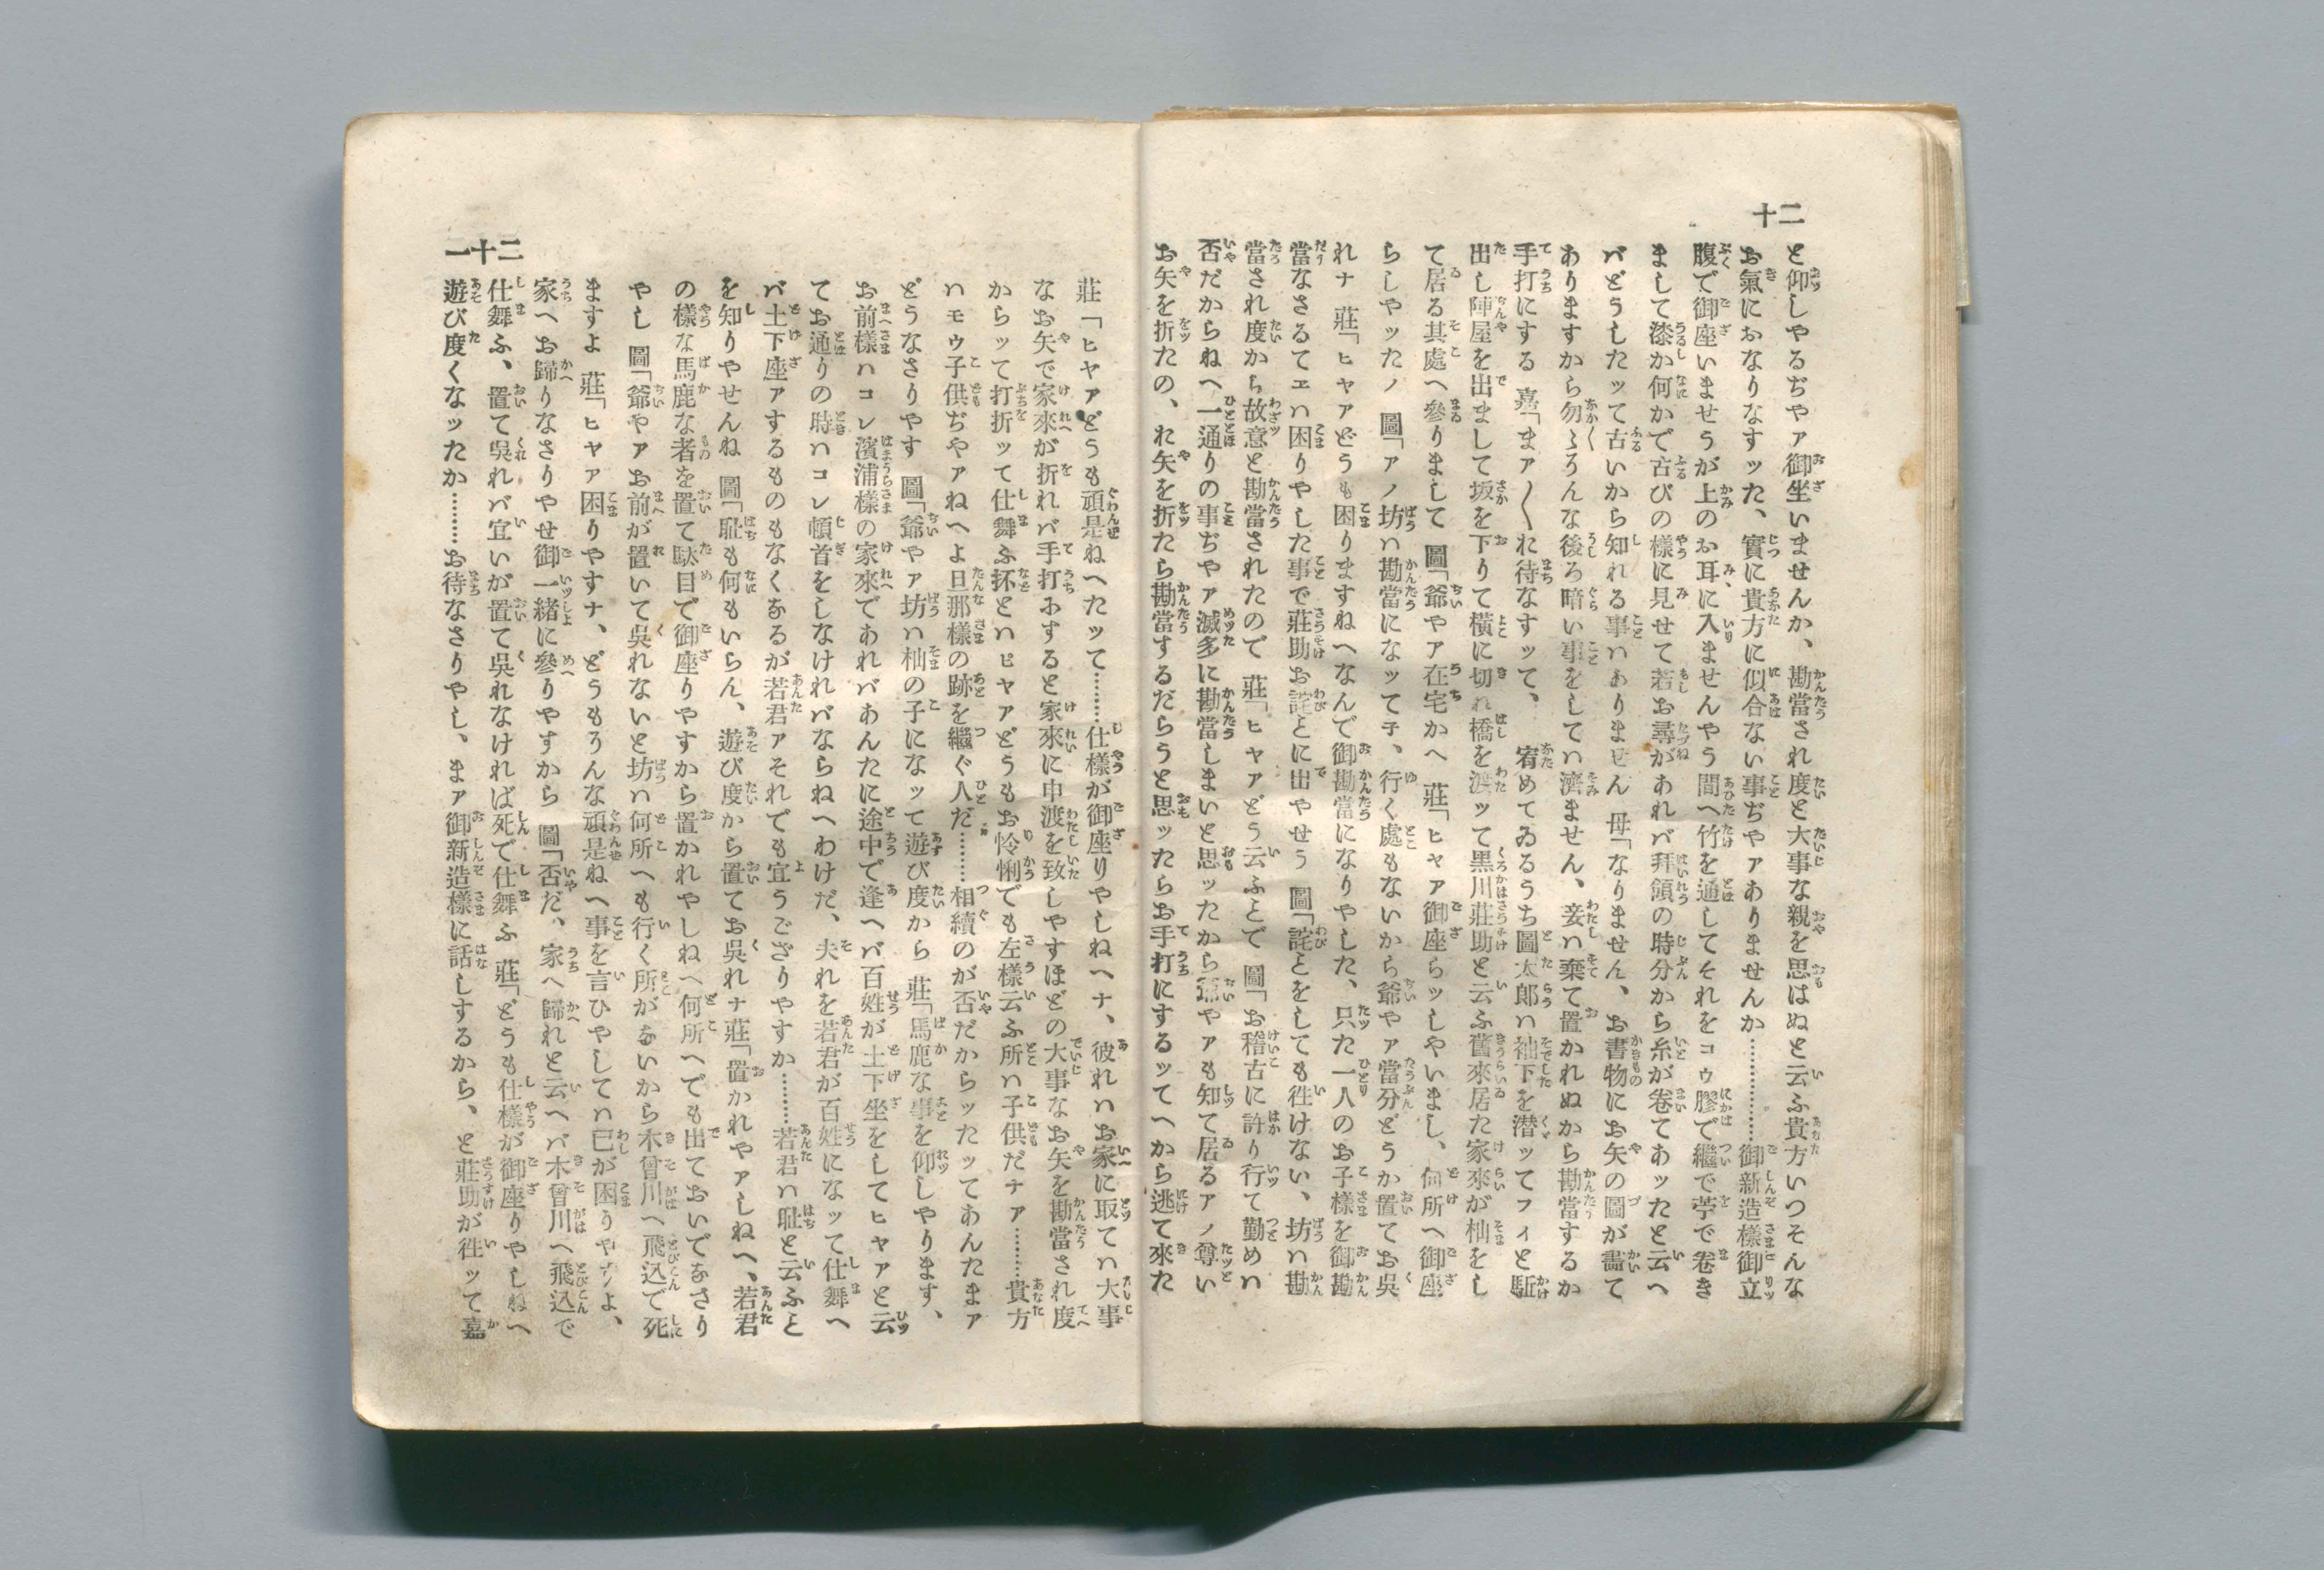 二十
と仰しやるぢやァ御坐いませんか、勘當され度と大事な親を思はぬと云ふ貴方いつそんな
お氣におなりなすッた、實に貴方に似合ない事ぢやァありませんか…………御新造樣御立
腹で御座いませうが上のお耳に入ませんやう間へ竹を通してそれをコゥ膠で繼で苧で卷き
まして漆か何かで古びの樣に見せて若お尋があれバ拜領の時分から糸が卷てあッたと云へ
バどうしたッて古いから知れる事ハありません 母「なりません、お書物にお矢の圖が畵て
ありますから勿〱ろんな後ろ暗い事をしてハ濟ません、妾ハ棄て置かれぬから勘當するか
手打にする 嘉「まァ〱れ待なすッて、 宥めてゐるうち圖太郎ハ袖下を潜ッてフィと駈
出し陣屋を出まして坂を下りて橫に切れ橋を渡ッて黒川莊助と云ふ舊來居た家來が杣をし
て居る其處へ參りまして 圖「爺やァ在宅かへ 莊「ヒャァ御座らッしやいまし、何所へ御座
らしやッたノ 圖「アノ坊ハ勘當になッて子、行く處もないから爺やァ當分どうか置てお呉
れナ 莊「ヒャァどうも困りますねへなんで御勘當になりやした、只た一人のお子樣を御勘
當なさるてエハ困りやした事で莊助お詫とに出やせう 圖「詫とをしても徃けない、坊ハ勘
當され度から故意と勘當されたので 莊「ヒャァどう云ふとで 圖「お稽古に許り行て勤めハ
否だからねへ一通りの事ぢやァ滅多に勘當しまいと思ッたから爺やァも知て居るアノ尊い
お矢を折たの、れ矢を折たら勘當するだらうと思ッたらお手打にするッてへから逃て來た
二十一
莊「ヒャァどうも頑是ねへたッて………仕樣が御座りやしねヘナ、彼れハお家に取てハ大事
なお矢で家來が折れバ手打おすると家來に申渡を致しやすほどの大事なお矢を勘當され度
からッて打折ッて仕舞ふ抔とハヒャァどうもお怜悧でも左樣云ふ所ハ子供だナァ………貴方
ハモウ子供ぢやァねへよ旦那樣の跡を繼ぐ人だ………相續のが否だからッたッてあんたまァ
どうなさりやす 圖「爺やァ坊ハ杣の子になッて遊び度から 莊「馬鹿な事を仰しやります、
お前樣ハコレ濱浦樣の家來であれバあんたに途中で逢へバ百姓が土下坐をしてヒャァと云
てお通りの時ハコレ頓首をしなけれバならねへわけだ、夫れを若君が百姓になッて仕舞へ
バ土下座ァするものもなくなるが若君ァそれでも宜うござりやすか………若君ハ耻と云ふと
を知りやせんね 圖「耻も何もいらん、遊び度から置てお呉れナ 莊「置かれやァしねへ、若君
の樣な馬鹿な者を置て駄目で御座りやすから置かれやしねへ何所へでも出ておいでなさり
やし 圖「爺やァお前が置いて呉れないと坊ハ何所へも行く所がないから木曾川へ飛込で死
ますよ 莊「ヒャァ困りやすナ、どうもろんな頑是ねへ事を言ひやしてハ己が困りやすよ、
家へお歸りなさりやせ御一緒に參りやすから 圖「否だ、家へ歸れと云へバ木曾川へ飛込で
仕舞ふ、置て呉れバ宜いが置て呉れなければ死で仕舞ふ 莊「どうも仕樣が御座りやしねへ
遊び度くなッたか………お待なさりやし、まァ御新造樣に話しするから、と莊助が徃ッて嘉